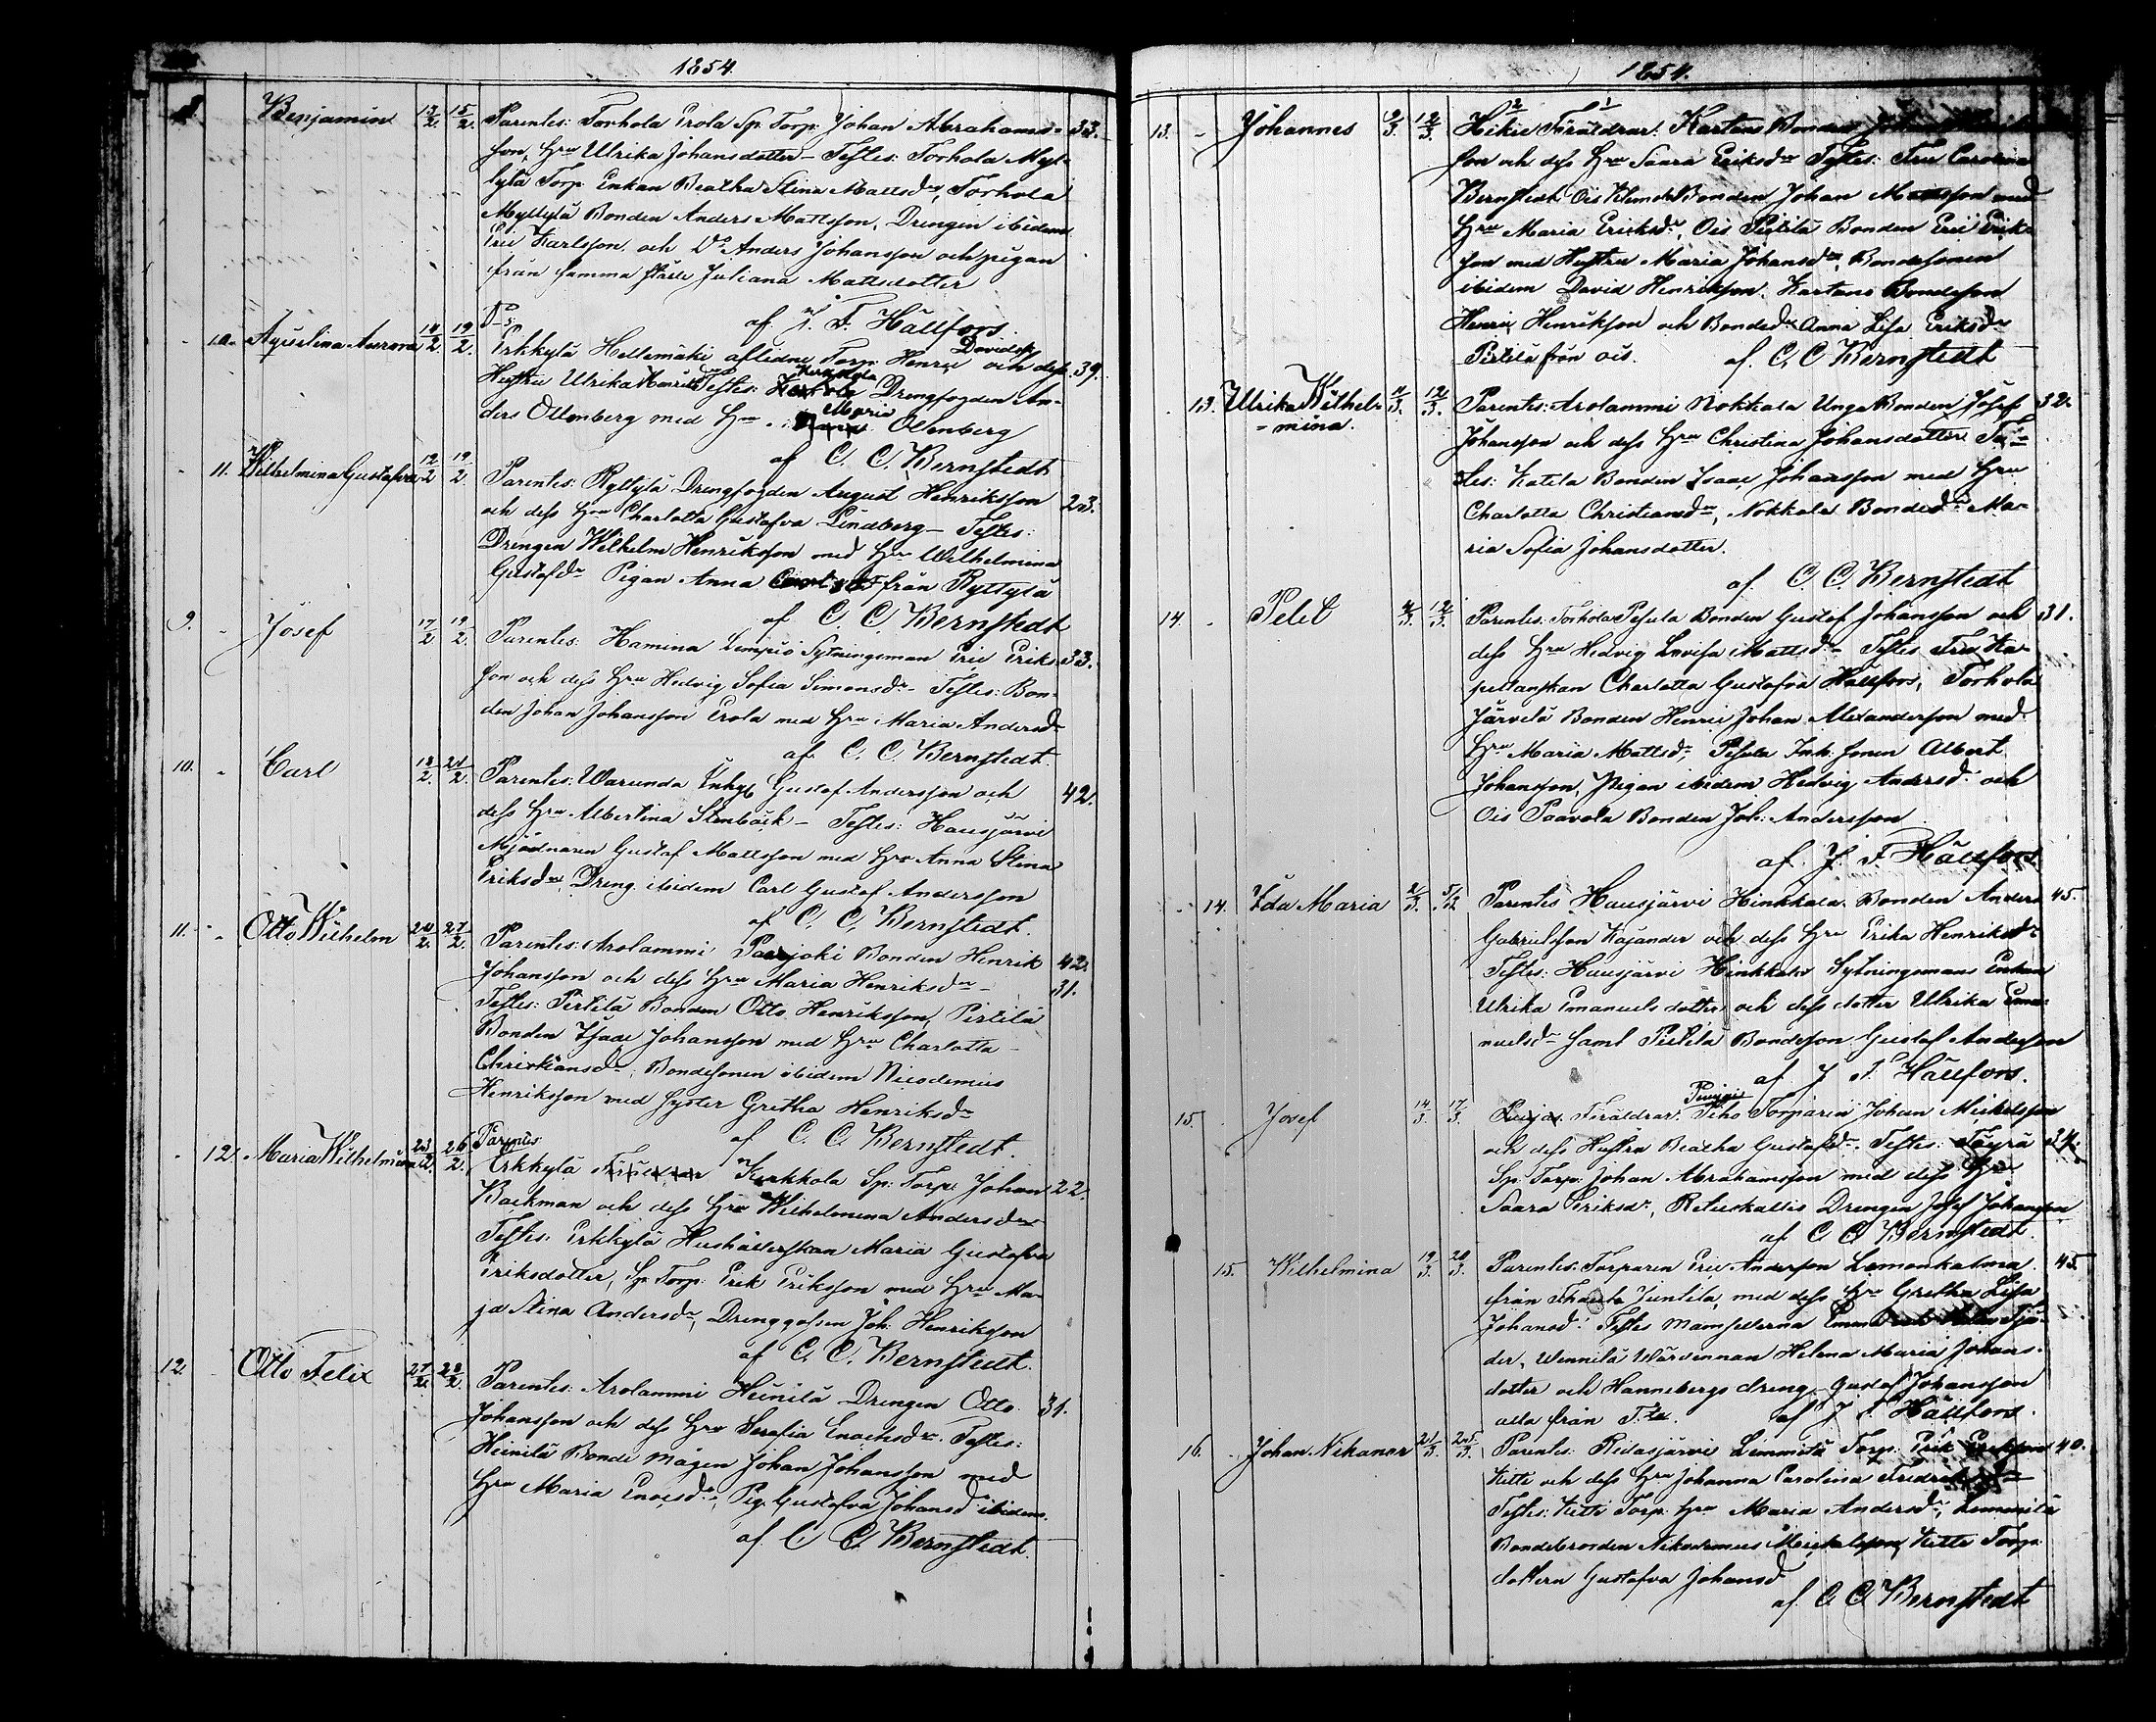 1854.
8. Benjamin 13/2. 15/2. Parentes: Torhola Erola Sp. Torp. Johan Abrahams- 33.
son, Hru Ulrika Johansdotter – Testes: Torhola Myl-
lylä Torp. Enkan Beatha Stina Mattsdr, Torhola
Myllylä Bonden Anders Mattsson, Drengen ibidem
Eric Karlsson och Do Anders Johansson och pigan
från samma ställe Juliana Mattsdotter
af J. F. Hällfors.
10. Aqvelina Aurora 14/2. 19/2. Erkkylä Hellemäki aflidne Torp. Henric Davidss. och dess 39.
Hustru Ulrika Henriksdr Testes: Kerkkola Drengfogden An-
ders Ollenberg med Hru Maria Ollenberg
af C. C. Bernstedt
11. Wilhelmina Gustafva 12/2 19/2. Parentes: Ryttylä Drengfogden August Henriksson 23.
och dess Hru Charlotta Gustafva Lindberg – Testes:
Drengen Wilhelm Henriksson med Hru Wilhelmina
Gustafdr Pigan Anna från Ryttylä
af C. C. Bernstedt
9. Josef 17/2 19/2. Parentes: Hamina Lempiö Sytningsman Eric Eriks- 33.
son och dess Hru Hedvig Sofia Simonsdr – Testes: Bon-
den Johan Johansson Erola med Hru Maria Andersdr
af C. C. Bernstedt.
10. Carl 18/2. 21/2. Parentes: Warunda Inhys Gustaf Andersson och 42.
dess Hru Albertina Stenbäck – Testes: Hausjärvi
Mjödnaren Gustaf Mattsson med Hru Anna Stina
Eriksdr, Dreng ibidem Carl Gustaf Andersson
af C. C. Bernstedt.
11. Otto Wilhelm 20/2. 27/2. Parentes: Arolammi Paarjoki Bonden Henrik 42.
Johansson och dess Hru Maria Henriksdr – 31.
Testes: Pertilä Bonden Otto Henriksson, Pertilä
Bonden Isaac Johansson med Hru Charlotta
Christiansdr, Bondesonen ibidem Nicodemus
Henriksson med syster Gretha Henriksdr
af C. C. Bernstedt.
12. Maria Wilhelmina 23/2. 26/2. Parentes:
Erkkylä Kerkkola Sp. Torp. Johan 22.
Backman och dess Hru Wilhelmina Andersdr
Testes: Erkkylä Hushållerskan Maria Gustafva
Eriksdotter, Sp. Torp. Erik Eriksson med Hru Ma-
ja Stina Andersdr, Drenggossen Joh: Henriksson
af C. C. Bernstedt.
12. Otto Felix 27/2. 28/2. Parentes: Arolammi Heinilä Drengen Otto 31.
Johansson och dess Hru Serafia Enochsdr. Testes:
Heinilä Bonde mågen Johan Johansson med
Hru Maria Enocsdr, Pig. Gustafva Johansd ibidem.
af C. C. Bernstedt.
1854.
13. Johannes 9/3. 12/3. Hikiä Föräldrar: Kartano Bonden
son och dess Hru Saara Eriksdr Testes: Fru Carolina
Bernstedt Ois Klemola Bonden Johan Mattsson med
Hru Maria Ericksdr, Ois Pertilä Bonden Eric Erik-
son med Hustru Maria Johansdr, Bondesonen
ibidem David Henriksson, Kartano Bondeson
Henric Henriksson och Bondedr Anna Lisa Eriksdr
Pertilä från Ois. af C. C. Bernstedt
13. Ulrika Wilhel- 11/3. 12/3. Parentes: Arolammi Nokkala Unga Bonden Josef 32.
mina. Johansson och dess Hru Christina Johansdotter Te-
stes: Katila Bonden Isaac Johansson med Hru
Charlotta Christiansdr, Nokkala Bondedr Ma-
ria Sofia Johansdotter.
af C. C. Bernstedt
14. Petel 12/3. Parentes: Torhola Pesula Bonden Gustaf Johansson och 31.
dess Hru Hedvig Lovisa Mattsdr – Testes Fru Ka-
pellanskan Charlotta Gustafva Hällfors, Torhola
Järvelä Bonden Henric Johan Alexandersson med
Hru Maria Mattsdr, Pesula Inh. sonen Albert
Johansson, Pigan ibidem Hedvig Andersd. och
Ois Paavola Bonden Joh: Andersson
af J. F. Hällfors
14. Ida Maria 2/3. 5/12 Parentes Hausjärvi Hinkkala Bonden Anders 45.
Gabrielsson Kajander och dess Hru Erika Henriksdr
Testes: Hausjärvi Hinkkala Sytningsmans Enkan
Ulrika Emanuelsdotter och dess dotter Ulrika Ema-
nuelsdr samt Pertilä Bondeson Gustaf Andersson
af J. F. Hällfors.
15. Josef 14/3. 17/3. Föräldrar: Tiho Torparen Johan Mickelsson
och dess Hustru Beatha Gustafsdr. Testes: Töyrä 24.
Sp. Torp. Johan Abrahamsson med dess Hru
Saara Eriksdr, Retuskallis Drengen Josef Johansson
af C. C. Bernstedt.
15. Wilhelmina 19/3. 20/3. Parentes: Torparen Eric Andersson Lemonkalma 45.
från Juntila, med dess Hru Gretha Lisa
Johansd: Testes Mamsellerna
der, Wennilä Wärdinnan Helena Maria Johans-
dotter och Hannebergs dreng Gustaf Johansson
alla från af J. F. Hällfors.
16. Johan Nikanor 21/3. 25/3. Parentes: Ridasjärvi Lemmilä Torp. Erik Erikson 40.
Kette och dess Hru Johanna Carolina
Testes: Kette Torp. Hru Maria Andersdr, Lemmilä
Bondebroden Nikodemus Mickelsson, Kette Torp.
dottern Gustafva Johansd
af C. C. Bernstedt